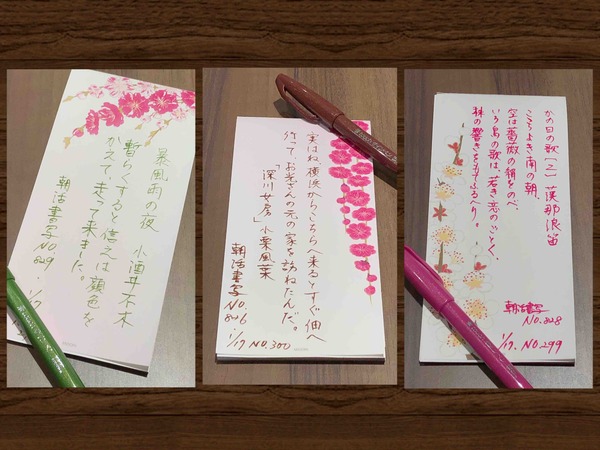 暴風雨の夜 小酒井不木
暫らくすると信之は顔色を
かえて、走って来ました。
朝活書写No.
829 1/17
実はね横浜からこちらへ来るとすぐ佃へ
行って、お光さんの元の家を訪ねたんだ。
「深川女房」小栗風葉
朝活書写No.
826
1/17 NO.300
かの日の歌(二) 漢那浪笛
こころよき南の朝、
空は薔薇の絹をのべ、
いろ鳥の歌は、若き恋のごとく、
林の響きを ふるへり。
朝活書写
No.828
1/17. NO.299